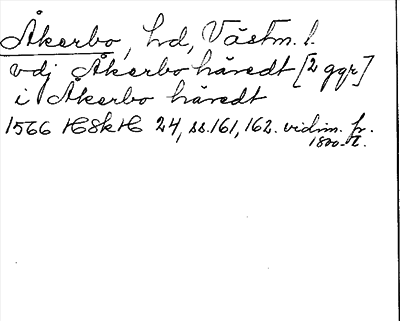 Åkerbo, hd, Västm. l.
vdj Åkerbo häredt [2 ggr]
i Åkerbo häredt
1566 HSkH 24, ss. 161, 162. vidim. fr.
1800-t.